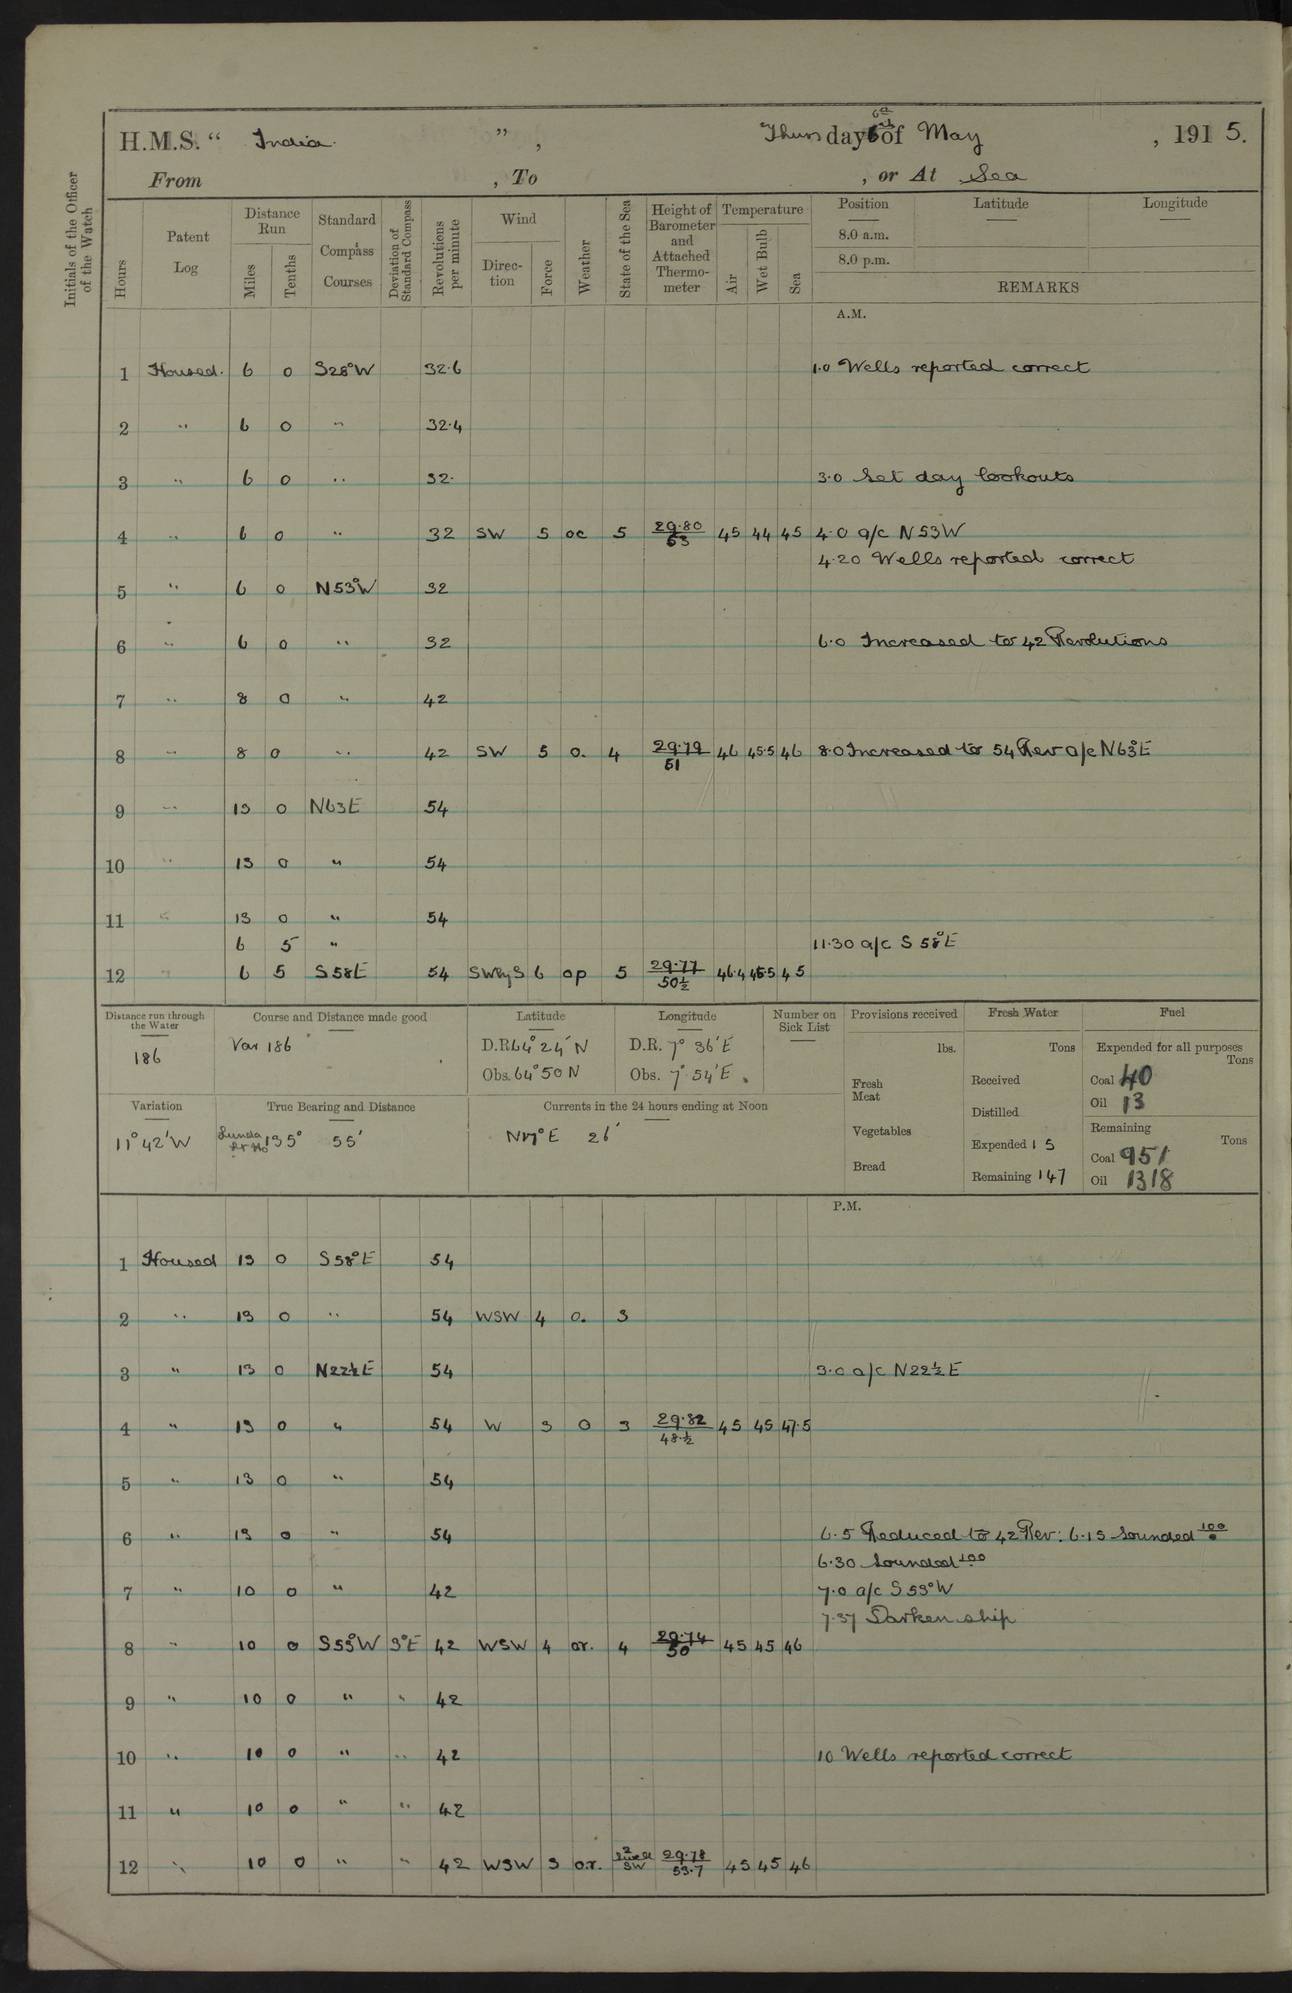 H.M.S. “ India. ” , Thursday 6th of May , 1915.
From , To , or At Sea
Initials of the Officer of the Watch
Hours Patent Log Distance Run Miles Tenths Standard Compass Courses Deviation of Standard Compass Revolutions per minute Wind Direc-tion Force Weather State of the Sea Height of Barometer and Attached Thermo-meter Temperature Air Wet Bulb Sea Position Latitude Longitude
8.0 a.m.
8.0 p.m.
REMARKS
A.M.
1 Housed. 6 0 S28°W 32.6 1.0 Wells reported correct
2 " 6 0 " 32.4
3 " 6 0 " 32. 3.0 Set day lookouts
4 " 6 0 " 32 SW 5 oc 5 29.80/53 45 44 45 4.0 a/c N53W
4.20 Wells reported correct
5 " 6 0 N53°W 32
6 " 6 0 " 32 6.0 Increased to 42 Revolutions
7 " 8 0 " 42
8 " 8 0 " 42 SW 5 o. 4 29.79/51 46 45.5 46 8.0 Increased to 54 Rev a/c N63°E
9 " 13 0 N63E 54
10 " 13 0 " 54
11 " 13 0 " 54
6 5 " 11.30 a/c S 58°E
12 " 6 5 S58E 54 SWbyS 6 op 5 29.77/50½ 46.4 45.5 45
Distance run through the Water Course and Distance made good Latitude Longitude Number on Sick List Provisions received Fresh Water Fuel
186 Var 186 D.R. 64° 24' N D.R. 7° 36' E lbs. Tons Expended for all purposes Tons
Obs. 64° 50 N Obs. 7° 54' E. Fresh Meat Received Coal 40
Distilled Oil 13
Variation True Bearing and Distance Currents in the 24 hours ending at Noon Vegetables Remaining Tons
11° 42' W 135° 55' N17°E 26' Expended 15 Coal 951
Bread Remaining 147 Oil 1318
P.M.
1 Housed 13 0 S58°E 54
2 " 13 0 " 54 WSW 4 o. 3
3 " 13 0 N22½E 54 3.0 a/c N22½E
4 " 13 0 " 54 W 3 O 3 29.82/48.½ 45 45 47.5
5 " 13 0 " 54
6 " 13 0 " 54 6.5 Reduced to 42 Rev: 6.15 Sounded 100/0
6.30 Sounded 100
7 " 10 0 " 42 7.0 a/c S53°W
7.37 Darken ship
8 " 10 0 S53°W 3°E 42 WSW 4 or. 4 29.74/50 45 45 46
9 " 10 0 " " 42
10 " 10 0 " " 42 10 Wells reported correct
11 " 10 0 " " 42
12 " 10 0 " " 42 WSW 3 o.r. 2 Swell SW 29.78/53.7 45 45 46